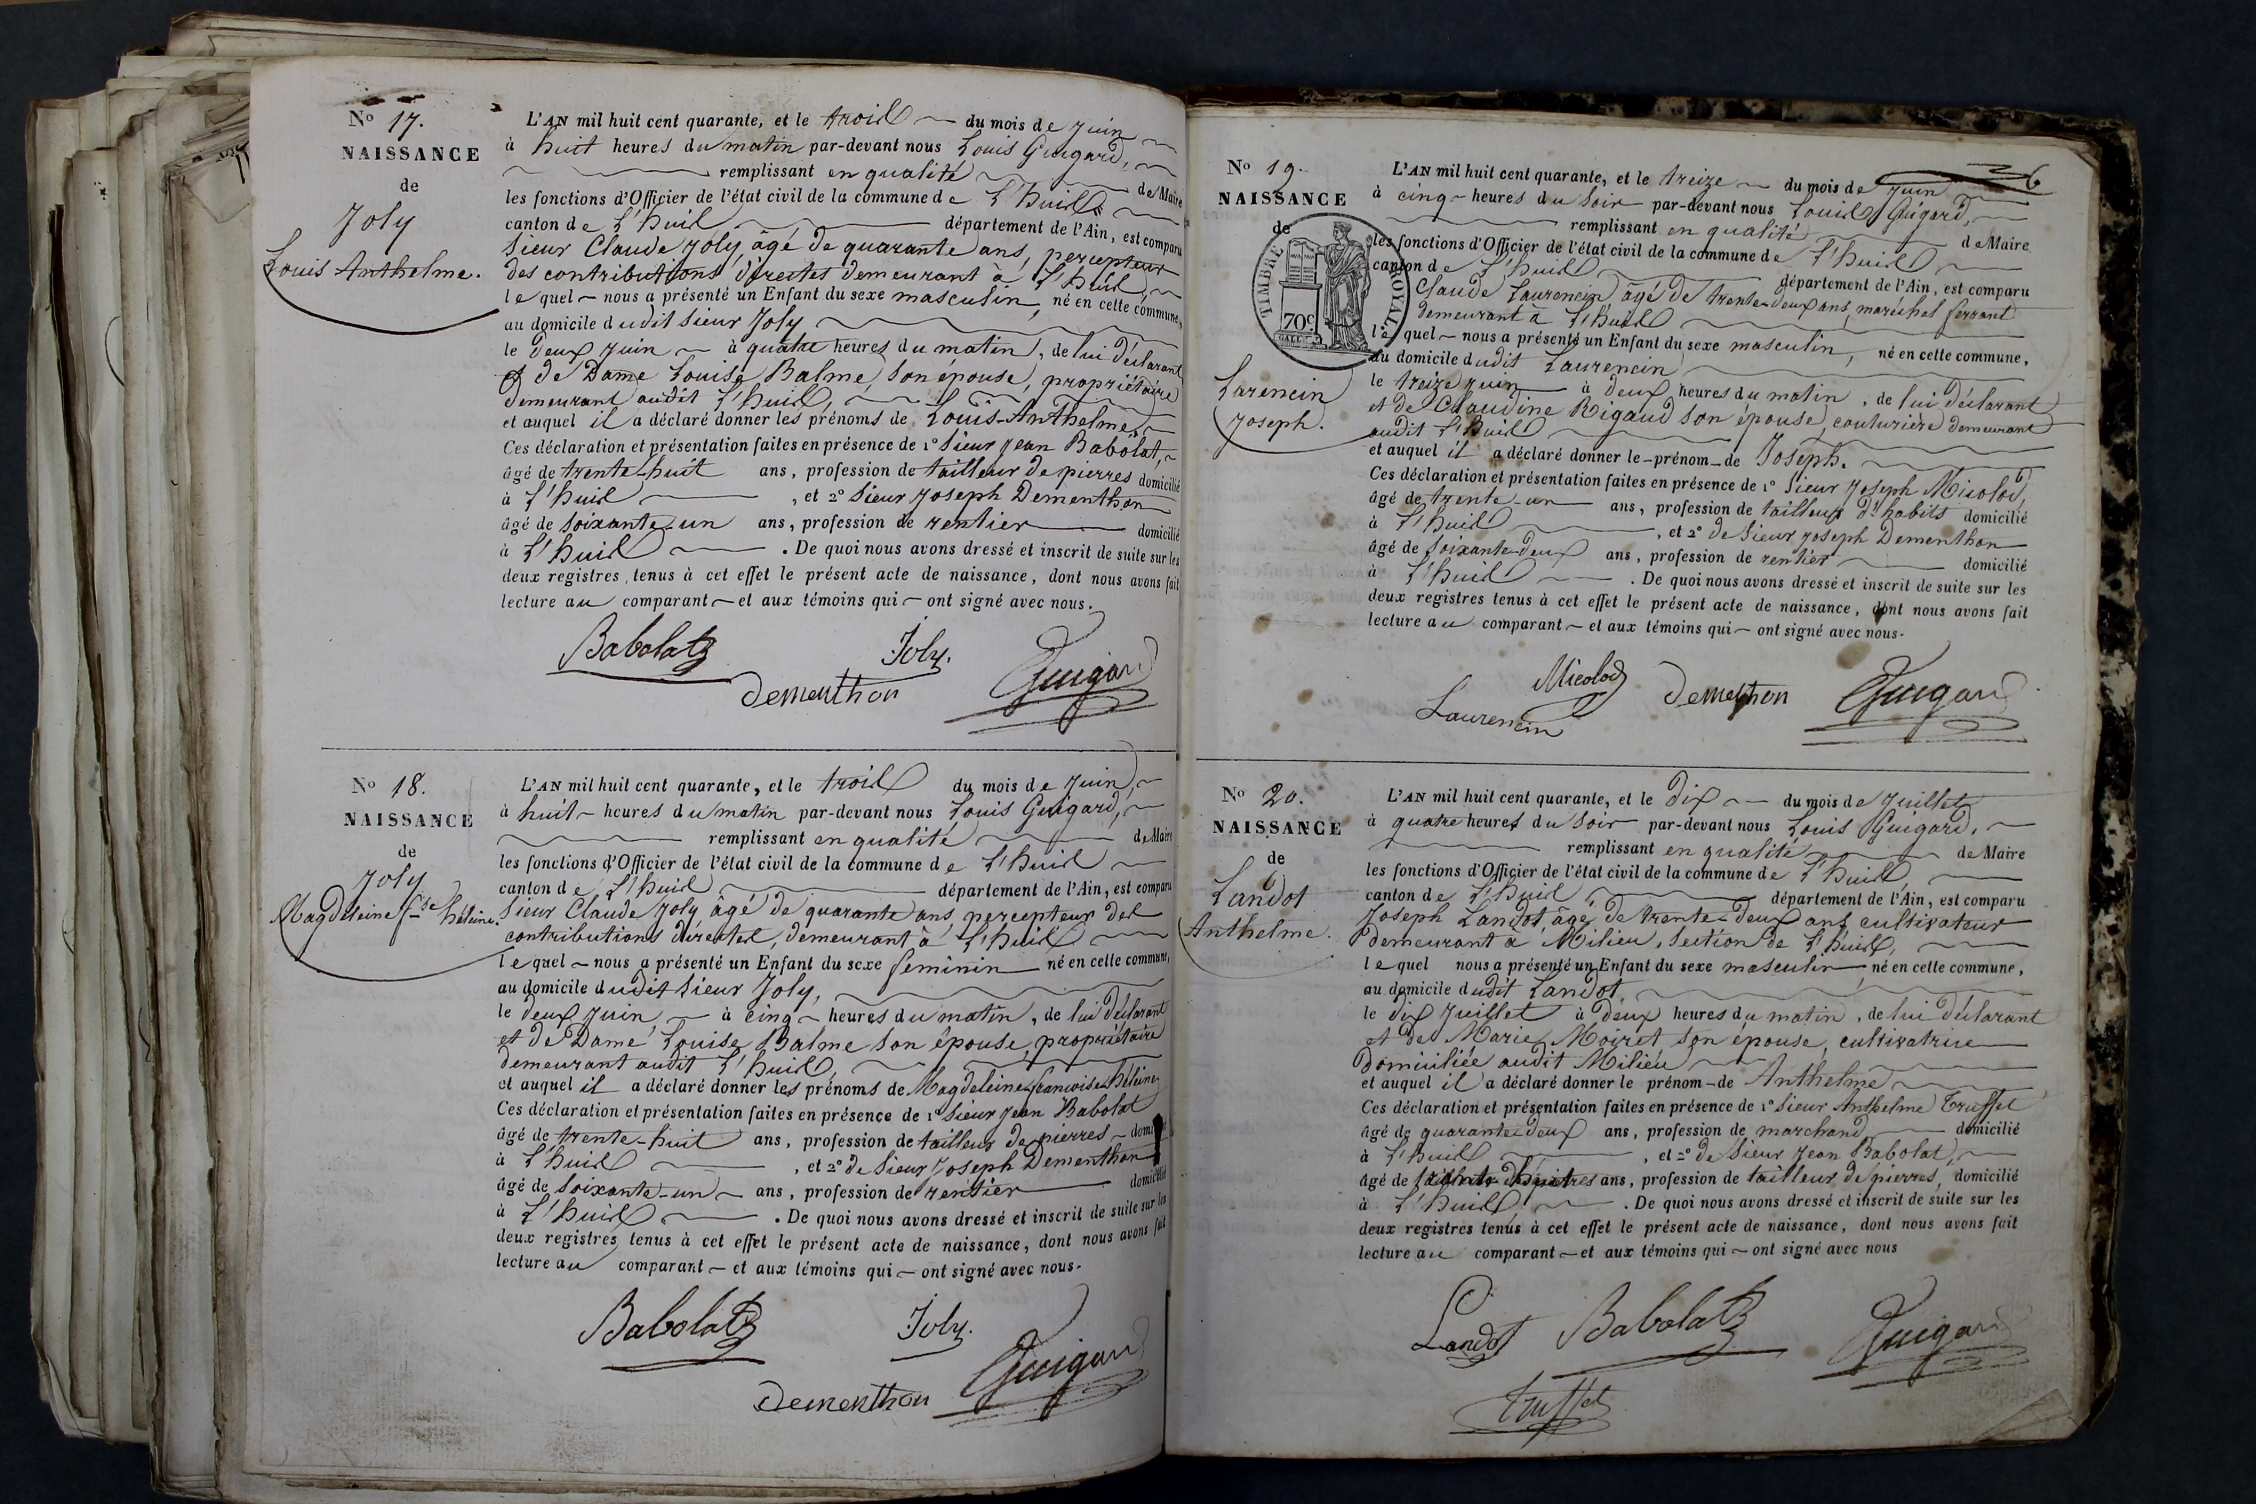 N° 17.
NAISSANCE
de
Joly
Louis Anthelme.
L'AN mil huit cent quarante, et le trois du mois de Juin
à huit heures du matin par-devant nous Louis Guigard,
remplissant en qualité de Maire
les fonctions d'Officier de l'état civil de la commune de L'huis
canton de L'huis département de l'Ain, est comparu
Sieur Claude Joly, âgé de quarante ans, percepteur
des contributions directes demeurant à L'huis,
lequel nous a présenté un Enfant du sexe masculin, né en cette commune,
au domicile dudit Sieur Joly
le deux Juin à quatre heures du matin, de lui déclarant
et de Dame Louise Balme, son épouse, propriétaire
demeurant audit L'huis,
et auquel il a déclaré donner les prénoms de Louis-Anthelme.
Ces déclaration et présentation faites en présence de 1° Sieur Jean Babolat,
âgé de trente-huit ans, profession de tailleur de pierres domicilié
à L'huis, et 2° Sieur Joseph Dementhon
âgé de soixante-un ans, profession de rentier domicilié
à L'huis. De quoi nous avons dressé et inscrit de suite sur les
deux registres tenus à cet effet le présent acte de naissance, dont nous avons fait
lecture au comparant et aux témoins qui ont signé avec nous.
Babolat Joly.
Dementhon Guigard
N° 18.
NAISSANCE
de
Joly
Magdeleine fse héleine.
L'AN mil huit cent quarante, et le trois du mois de Juin,
à huit heures du matin par-devant nous Louis Guigard,
remplissant en qualité de Maire
les fonctions d'Officier de l'état civil de la commune de L'huis
canton de L'huis département de l'Ain, est comparu
Sieur Claude Joly âgé de quarante ans percepteur des
contributions directes, demeurant à L'huis
lequel nous a présenté un Enfant du sexe feminin né en cette commune,
au domicile dudit Sieur Joly,
le deux Juin, à cinq heures du matin, de lui déclarant
et de Dame Louise Balme son épouse, propriétaire
demeurant audit L'huis,
et auquel il a déclaré donner les prénoms de Magdeleine francoise héleine
Ces déclaration et présentation faites en présence de 1° Sieur Jean Babolat
âgé de trente-huit ans, profession de tailleur de pierres domi
à L'huis, et 2° de Sieur Joseph Dementhon
âgé de soixante-un ans, profession de rentier domicilié
à L'huis. De quoi nous avons dressé et inscrit de suite sur les
deux registres tenus à cet effet le présent acte de naissance, dont nous avons fait
lecture au comparant et aux témoins qui ont signé avec nous.
Babolat Joly.
Dementhon Guigard
6
N° 19.
NAISSANCE
de
TIMBRE ROYAL
70c
Larencin
Joseph.
L'AN mil huit cent quarante, et le treize du mois de Juin
à cinq heures du soir par-devant nous Louis Guigard,
remplissant en qualité de Maire
les fonctions d'Officier de l'état civil de la commune de L'huis
canton de L'huis département de l'Ain, est comparu
Claude Laurencin âgé de trente-deux ans, maréchal ferrant
demeurant à L'huis
lequel nous a présenté un Enfant du sexe masculin, né en cette commune,
au domicile dudit Laurencin
le treize Juin à deux heures du matin, de lui déclarant
et de Claudine Rigaud son épouse, couturière demeurant
audit L'huis
et auquel il a déclaré donner le prénom de Joseph.
Ces déclaration et présentation faites en présence de 1° Sieur Joseph Micolod,
âgé de trente-un ans, profession de tailleur d'habits domicilié
à L'huis, et 2° de Sieur Joseph Dementhon
âgé de soixante-deux ans, profession de rentier domicilié
à L'huis. De quoi nous avons dressé et inscrit de suite sur les
deux registres tenus à cet effet le présent acte de naissance, dont nous avons fait
lecture au comparant et aux témoins qui ont signé avec nous.
Micolod Dementhon Guigard
Laurencin
N° 20.
NAISSANCE
de
Landot
Anthelme.
L'AN mil huit cent quarante, et le dix du mois de Juillet
à quatre heures du soir par-devant nous Louis Guigard,
remplissant en qualité de Maire
les fonctions d'Officier de l'état civil de la commune de L'huis
canton de L'huis, département de l'Ain, est comparu
Joseph Landot, âgé de trente-deux ans cultivateur
demeurant à Milieu, section de L'huis,
lequel nous a présenté un Enfant du sexe masculin né en cette commune,
au domicile dudit Landot,
le dix Juillet à deux heures du matin, de lui déclarant
et de Marie Moiret son épouse, cultivatrice
domiciliée audit Milieu
et auquel il a déclaré donner le prénom de Anthelme
Ces déclaration et présentation faites en présence de 1° Sieur Anthelme Truffet
âgé de quarante-deux ans, profession de marchand domicilié
à L'huis, et 2° de Sieur Jean Babolat,
âgé de ans, profession de tailleur de pierres, domicilié
à L'huis. De quoi nous avons dressé et inscrit de suite sur les
deux registres tenus à cet effet le présent acte de naissance, dont nous avons fait
lecture au comparant et aux témoins qui ont signé avec nous
Landot Babolat Guigard
Truffet